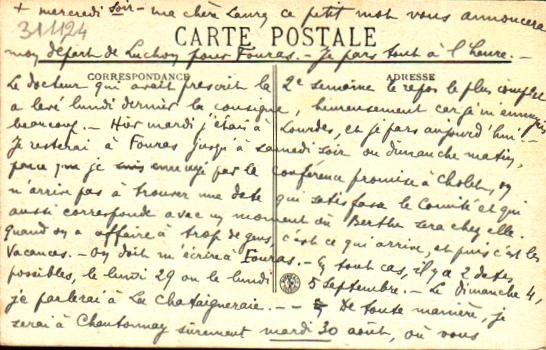 + mercredi soir - ma chère Laure ce petit mot vous annoncera
31124
CARTE POSTALE
mon départ de Luchon pour Fouras. - Je pars tout à l'heure. -
CORRESPONDANCE
ADRESSE
Le docteur qui avait prescrit la 2e semaine le repos le plus complet
a levé lundi dernier la consigne, heureusement car je m'ennuyais
beaucoup. - Hier mardi j'étais à Lourdes, et je pars aujourd'hui. -
je resterai à Fouras jusqu'à samedi soir ou dimanche matin,
parce que je suis ennuyé par la conférence promise à Cholet, on
n'arrive pas à trouver une date qui satisfasse le Comité et qui
aussi corresponde avec un moment où Berthe sera chez elle.
quand on a affaire à trop de gens, c'est ce qui arrive, et puis c'est les
vacances. - On doit m'écrire à Fouras. - En tout cas, il y a 2 dates
possibles, le lundi 29 ou le lundi 5 septembre. - Le dimanche 4,
je parlerai à La Chataigneraie. - De toute manière, je
serai à Chantonnay sûrement mardi 30 août, où vous